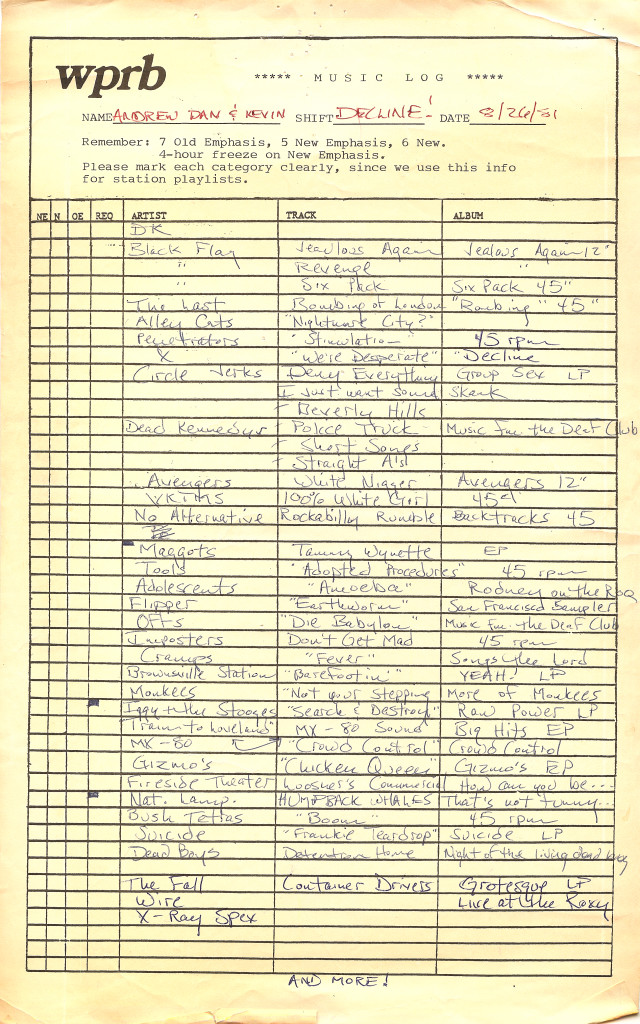 wprb ***** MUSIC LOG *****
NAME ANDREW DAN & KEVIN SHIFT DECLINE! DATE 8/26/81
Remember: 7 Old Emphasis, 5 New Emphasis, 6 New.
4-hour freeze on New Emphasis.
Please mark each category clearly, since we use this info
for station playlists.
NE N OE REQ ARTIST TRACK ALBUM
DK
Black Flag Jealous Again Jealous Again 12"
" Revenge "
" Six Pack Six Pack 45"
The Last Bombing of London "Bombing" 45"
Alley Cats "Nightmare City?"
Penetrators "Stimulation" 45 rpm
X "We're Desperate" "Decline
Circle Jerks Deny Everything Group Sex LP
I Just want Some Skank
+ Beverly Hills
Dead Kennedys Police Truck Music for the Deaf Club
+ Short Songs
+ Straight A's
Avengers White Nigger Avengers 12"
VKTMS 100% White Girl 45
No Alternative Rockabilly Rumble Backtracks 45
Maggots Tammy Wynette EP
Tools "Adopted Procedures" 45 rpm
Adolescents "Amoeba" Rodney on the Roq
Flipper "Earthworm" San Francisco Sampler
Offs "Die Babylon" Music for the Deaf Club
Imposters Don't Get Mad 45 rpm
Cramps "Fever" Songs the Lord
Brownsville Station "Barefootin'" YEAH! LP
Monkees "Not your Stepping More of Monkees
Iggy + the Stooges "Search & Destroy" Raw Power LP
"Train to Loveland" MX-80 Sound Big Hits EP
MX-80 "Crowd Control" Crowd Control
Gizmo's "Chicken Queen" Gizmo's EP
Fireside Theater Commercial How can you be...
Nat. Lamp. HUMPBACK WHALES That's not funny...
Bush Tetras "Boom" 45 rpm
Suicide "Frankie Teardrop" Suicide LP
Dead Boys Detention Home Night of the living dead boys
The Fall Container Drivers Grotesque LP
Wire Live at the Roxy
X-Ray Spex
AND MORE!